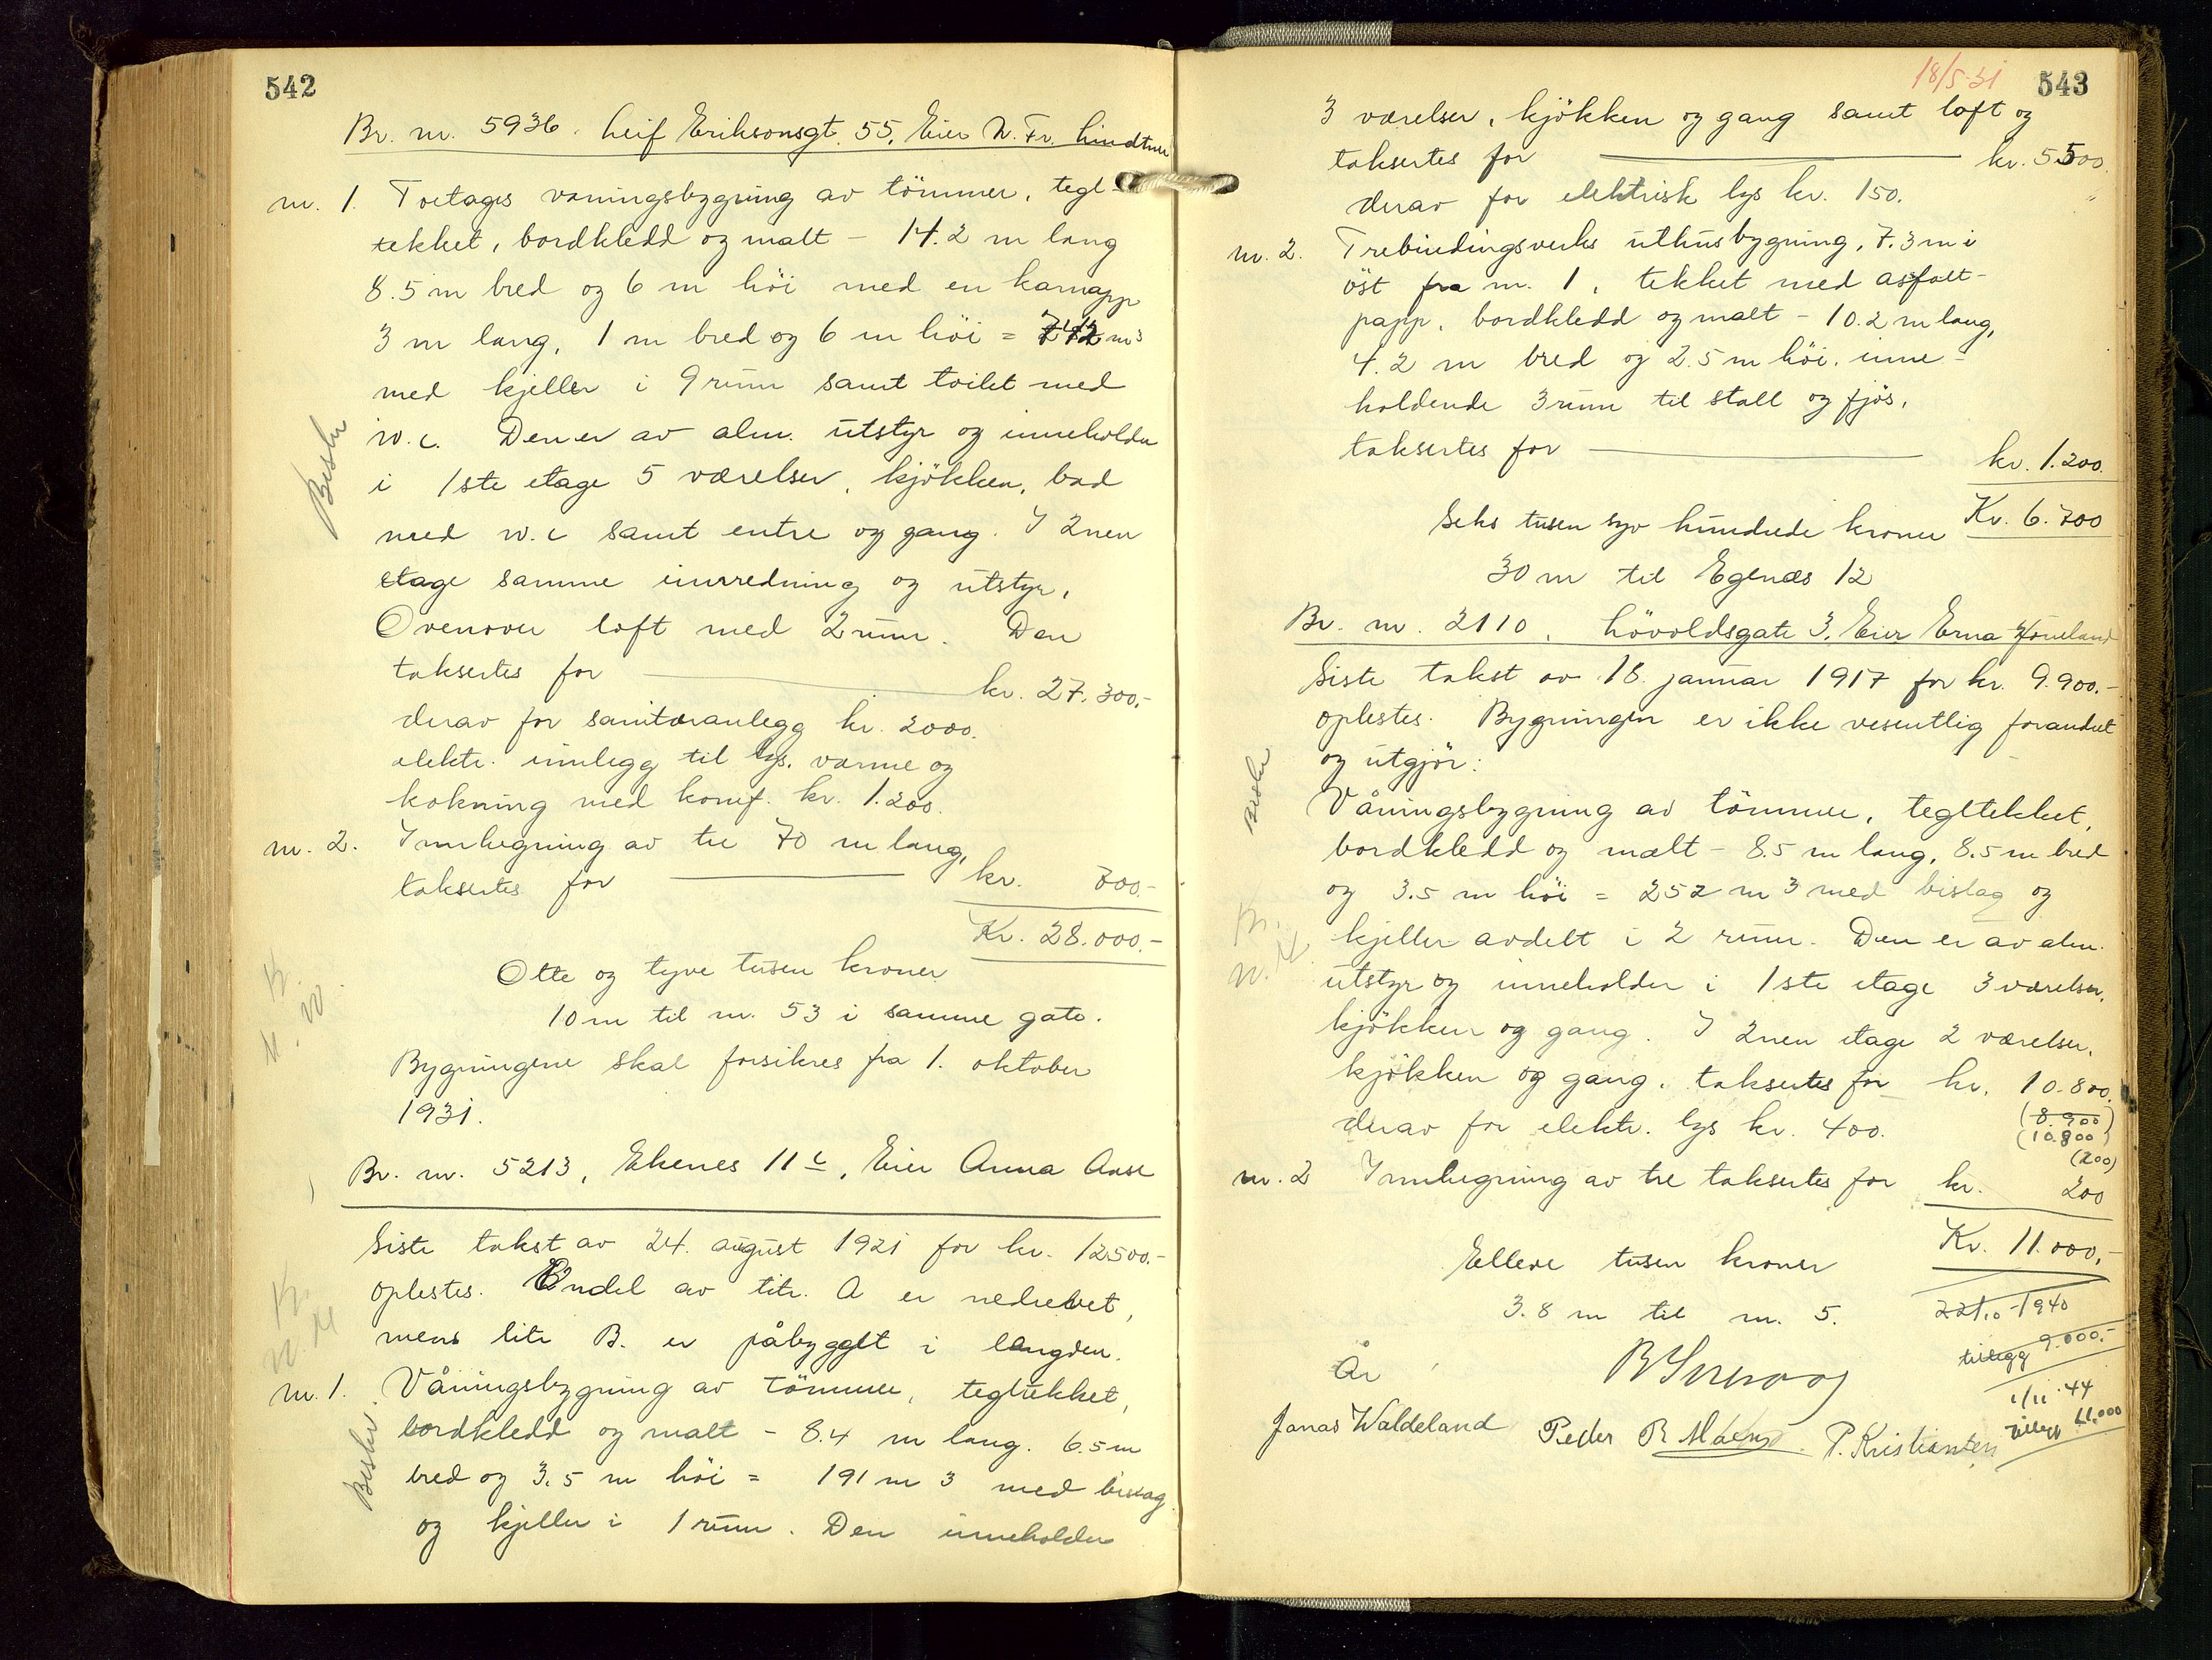 542
Br. nr. 5936. Leif Eriksonsgt. 55, Eier N. Fr. Lindtner
nr. 1. Toetages våningsbygning av tömmer, tegl-
tekket, bordkledd og malt - 14.2 m lang
8.5 m bred og 6 m höi med en karnapp
3 m lang, 1 m bred og 6 m höi = 742 m3
med kjeller i 9 rum samt toilet med
w.c. Den er av alm. utstyr og inneholder
i 1ste etage 5 værelser, kjökken, bad
med w.c samt entre og gang. I 2nen
etage samme innredning og utstyr.
Ovenover loft med 2 rum. Den
taksertes for kr. 27.300.-
derav for sanitæranlegg kr. 2000.
elektr. innlegg til lys, varme og
kokning med komf. kr. 1.200.
nr. 2. Innhegning av tre 70 m lang,
taksertes for kr. 700.-
Kr. 28.000.-
Otte og tyve tusen kroner
10 m til nr. 53 i samme gate.
Bygningene skal forsikres fra 1. oktober
1931.
Br. nr. 5213, Ekenes 11 c, Eier Anna Aase
Siste takst av 24. august 1921 for kr. 12500.-
oplestes. Endel av litr. A er nedrevet,
mens litr B. er påbygget i lengden.
nr. 1. Våningsbygning av tömmer, tegltekket,
bordkledd og malt - 8.4 m lang. 6.5 m
bred og 3.5 m höi = 191 m 3 med bislag
og kjeller i 1 rum. Den inneholder
18/5-31
543
3 værelser, kjökken og gang samt loft og
taksertes for kr. 5.500.
derav for elektrisk lys kr. 150.
nr. 2. Trebindingsverks uthusbygning, 7.3 m i
öst fra nr. 1, tekket med asfalt-
papp, bordkledd og malt - 10.2 m lang,
4.2 m bred og 2.5 m höi. inne-
holdende 3 rum til stall og fjös,
taksertes for kr. 1.200.
Seks tusen syv hundrede kroner Kr. 6.700
30 m til Egenæs 12
Br. nr. 2110, Lövoldsgate 3, Eier Erna
Siste takst av 18. januar 1917 for kr. 9.900.-
oplestes. Bygningen er ikke vesentlig forandret
og utgjör:
Våningsbygning av tömmer, tegltekket,
bordkledd og malt - 8.5 m lang, 8.5 m bred
og 3.5 m höi = 252 m 3 med bislag og
kjeller avdelt i 2 rum. Den er av alm.
utstyr og inneholder i 1ste etage 3 værelser,
kjökken og gang. I 2nen etage 2 værelser,
kjökken og gang. taksertes for kr. 10.800.
(8.900)
derav for elektr. lys kr. 400.
(10.800)
(200)
nr. 2 Innhegning av tre taksertes for kr. 200
Kr. 11.000,-
Elleve tusen kroner
3.8 m til nr. 5.
22/10-1940
tillegg 9.000.-
1/11 '44
tillegg 11.000
Jonas Waldeland Peder R. P. Kristiansen